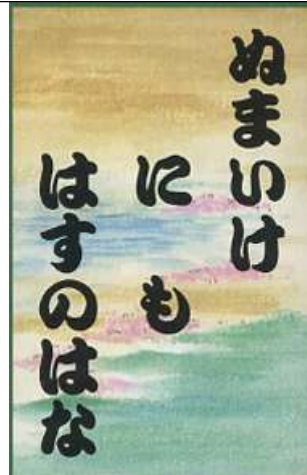 ぬまいけ
にも
はすのはな